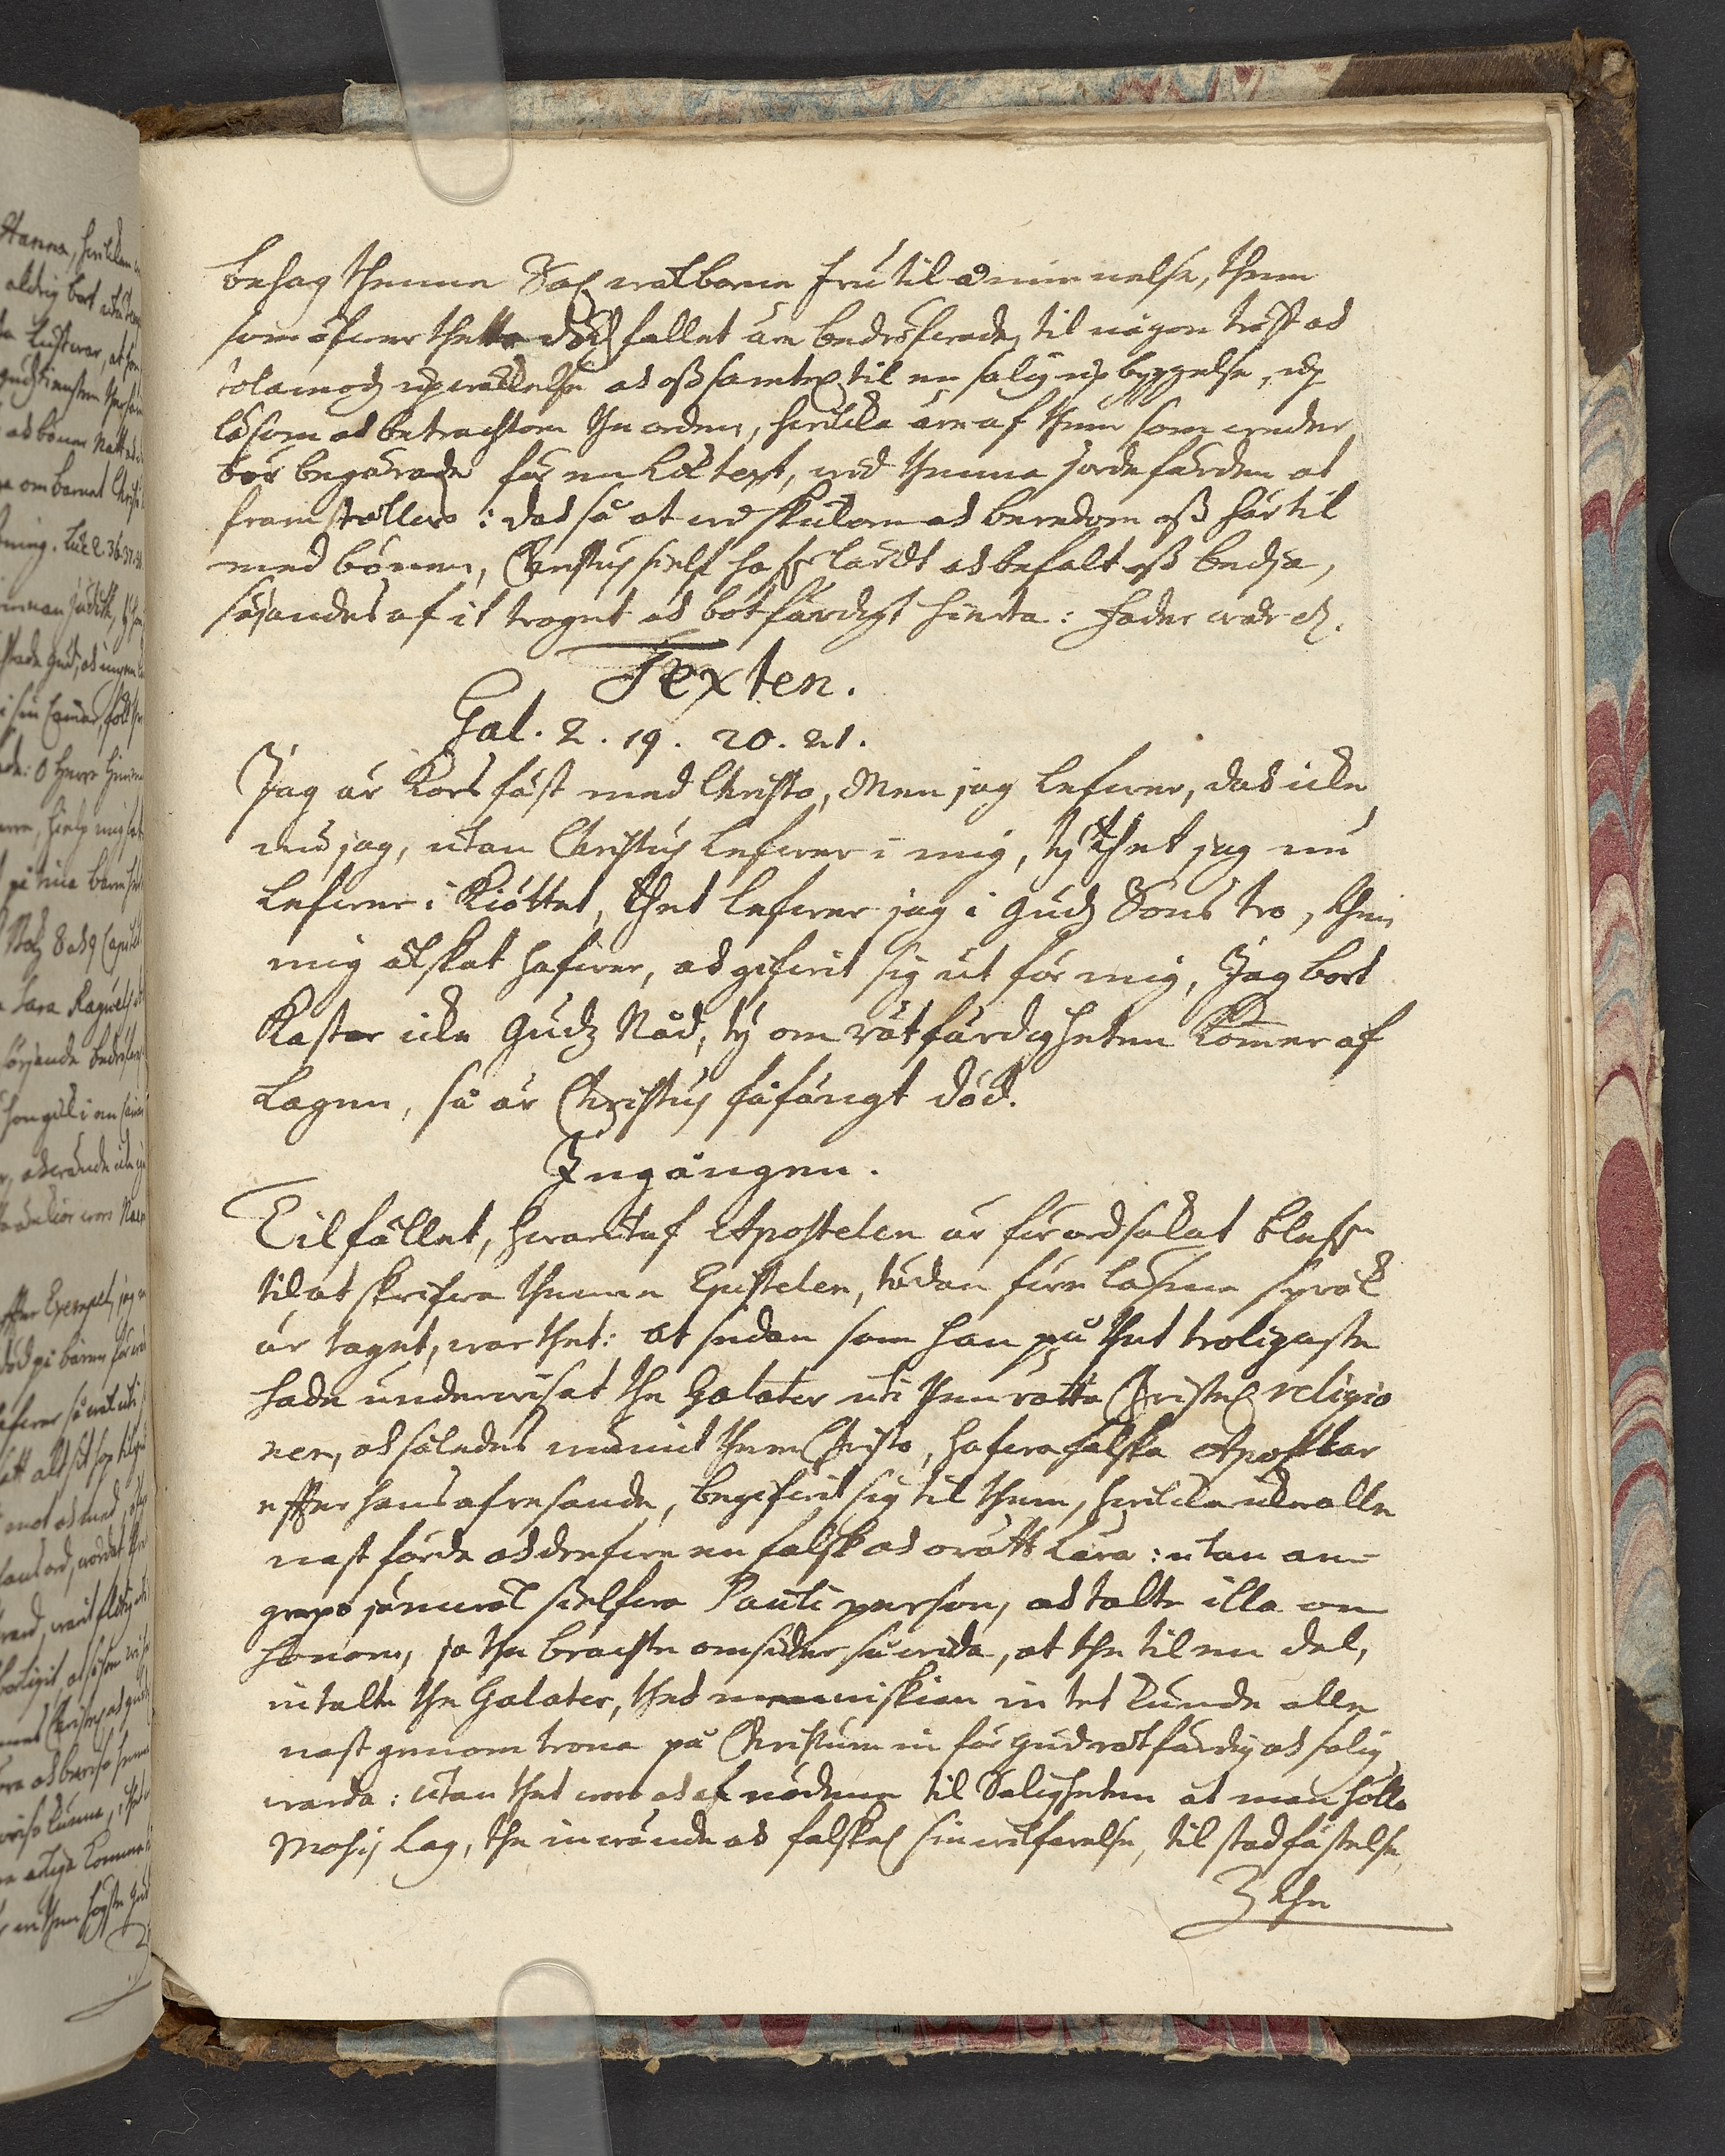 behag thenne Sal. wälborne Fru til åminnelse, them
som öfwer thetta dödzfallet äre bedröfwade, til någon tröst ock
tolamodz upwäckelse ock oss samtel. til en salig upbyggelse, up
läsom ock betrachtom the orden, hwilcka äre af them som wederbör
begärade för en Liktext, wid thenna jordefärden at
framställas: dock så at wij skulom ock beredom oss här til
med bönen, Christus sielf hafr lärdt ock befalt oss bedja,
säjandes af it troget ock botfärdigt hierta: Fader wår etc.
Texten.
Gal. 2. 19. 20. 21.
Jag är Korsfäst med Christo, Men jag lefwer, dock icke
nu jag, utan Christus lefwer i mig, ty thet jag nu
lefwer i Kiöttet, thet lefwer jag i Gudz Sons tro, then
mig älskat hafwer, ock gifwit sig ut för mig, Jag bort
Kastar icke Gudz Nåd, ty om rätfärdigheten Kommer af
Lagen, så är Christus fåfängt död.
Ingången.
Tilfället, hwaraf Apostelen är förordsakat blefwen
til at skrifwa thenne Epistelen, tädan före läsne språk
är taget, war thet: at sedan som han på thet troligaste
hade underwisat the Galater uti then rätta Christel. religio
nen, ock således wunnit them Christo, hafwa falska Apostlar
effter hans afresande, begifwit sig til them, hwilcka icke alle
nast förde ock drefwe en falsk ock orätt Lära: utan an-
grepo jämwäl sielfwa Pauli person, ock talte illa om
honom, ja the brachte omsider så wida, at the til en del,
intalte the Galater, thet menniskian intet kunde alle
nast genom trona på Christum in för Gud rätfärdig ock salig
warda: utan thet wore ock af nödene til Saligheten at man hölle
Mosis Lag, the inwände ock falskel. sin wilfarelse, til stadfästelse,
3 the